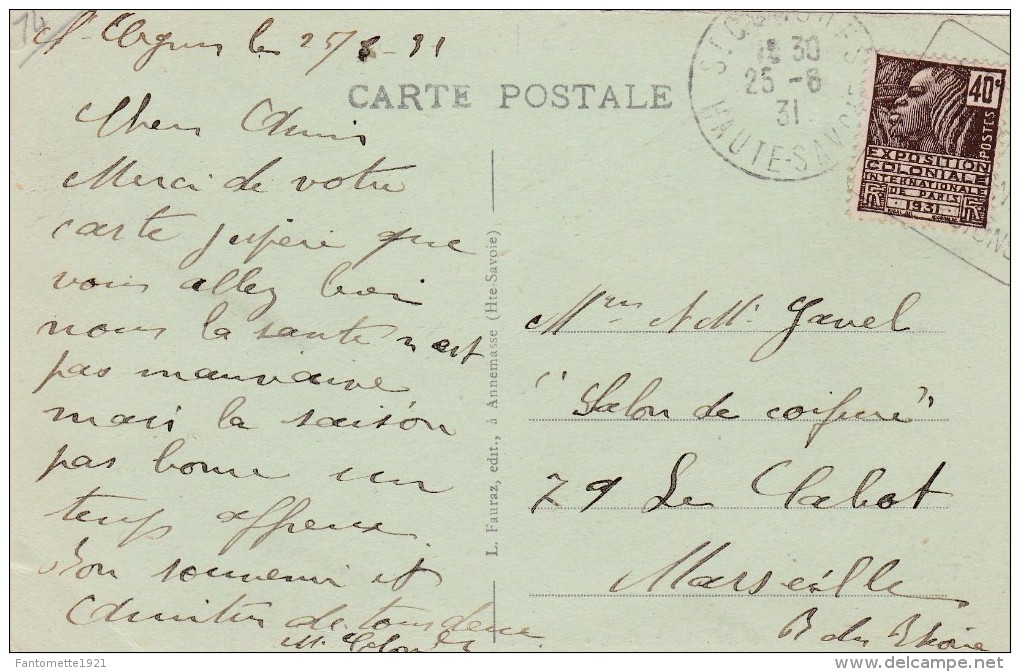 14
St Cergues les 25/8-31
CARTE POSTALE
Chers Amis
Merci de votre
carte j'espère que
vous allez bien
nous la santé n'est
pas mauvaise
mais la saison
pas bonne un
temps affreux
Bon souvenir et
Amitiés de tous deux
ST CERGUES
HAUTE-SAVOIE
30
25 -8
31
40c
POSTES
EXPOSITION
COLONIALE
INTERNATIONALE
DE PARIS
1931
L. Fauraz, edit., à Annemasse (Hte-Savoie)
Mrs Gavel
"Salon de coifure"
79 La Cabot
Marseille
B du Rhône
© Fantomette1921
delcampe.net